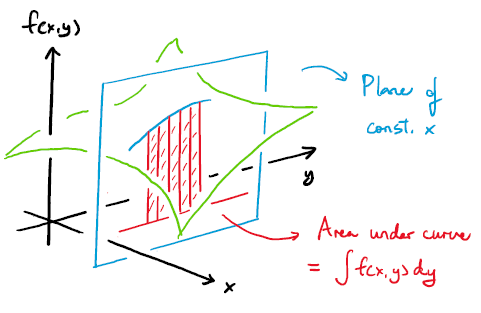 f(x,y)
Plane of
const. x
y
Area under curve
= ∫f(x,y) dy
x